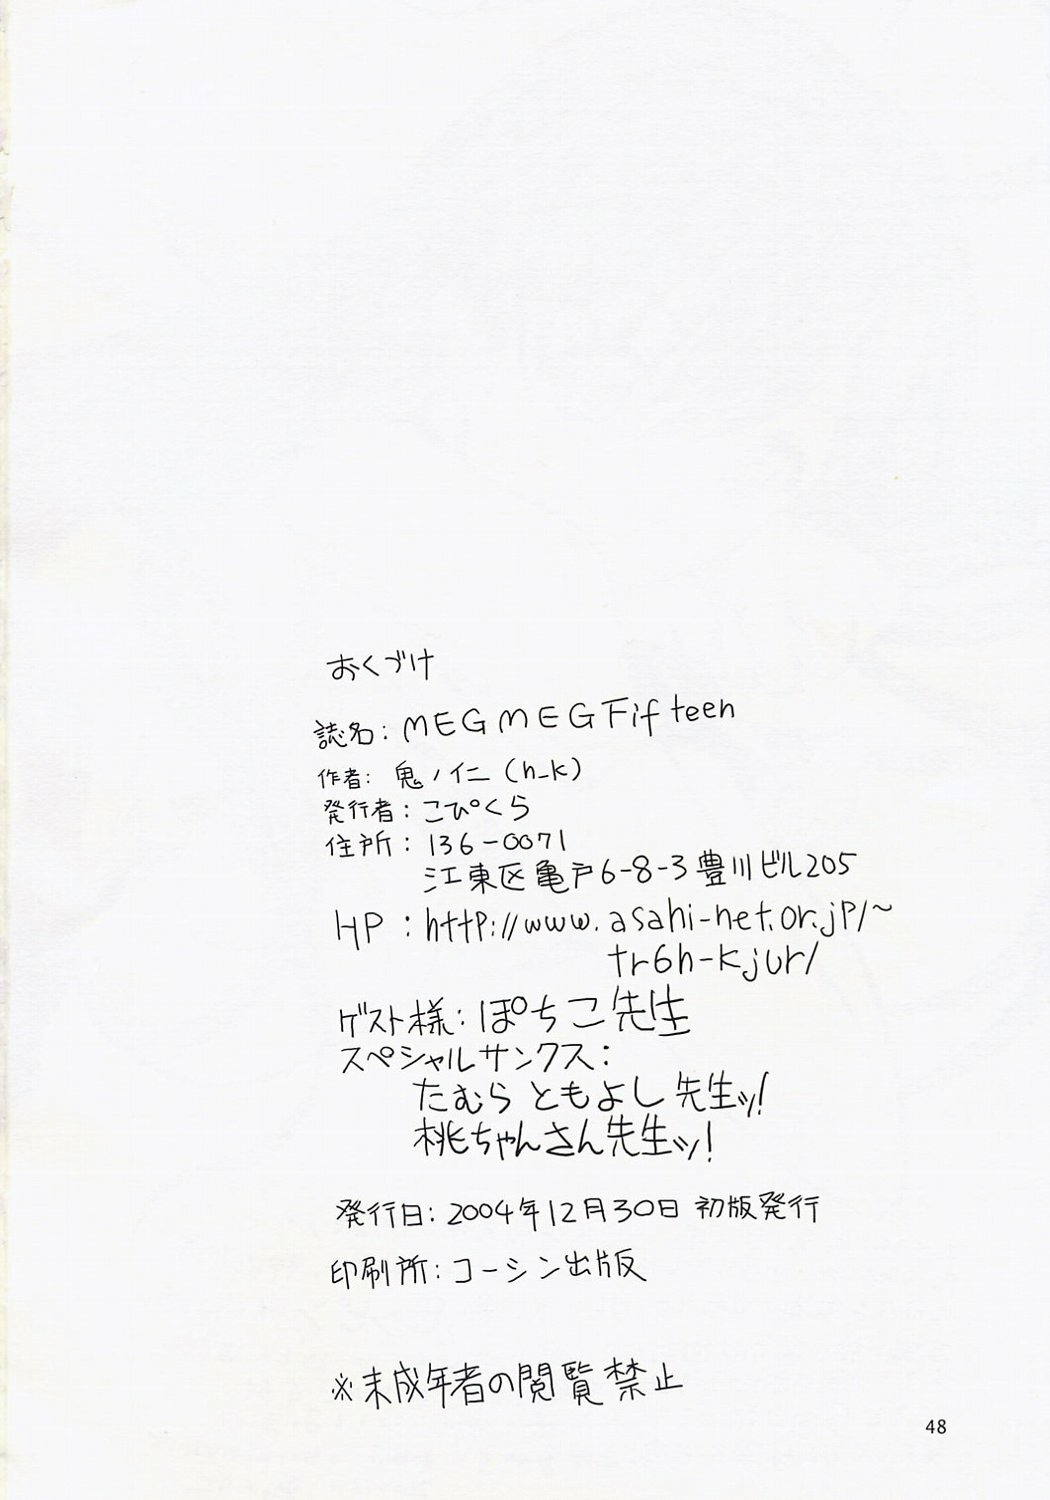 おくづけ
誌名：MEGMEGFifteen
作者：鬼ノ仁（h_k）
発行者：こぴくら
住所：136-0071
江東区亀戸6-8-3豊川ビル205
HP：http://www.asahi-net.or.jp/~
tr6h-kjur/
ゲスト様：ぽちこ先生
スペシャルサンクス：
たむらともよし先生ッ！
桃ちゃんさん先生ッ！
発行日：2004年12月30日 初版発行
印刷所：コーシン出版
※未成年者の閲覧禁止
48